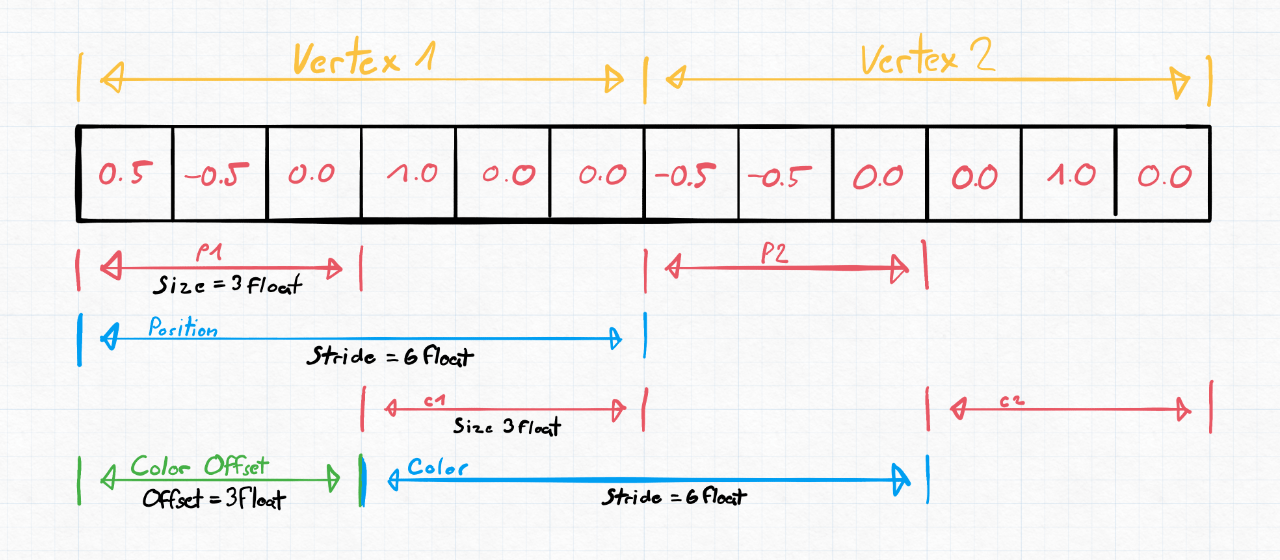 Vertex 1 Vertex 2
0.5 -0.5 0.0 1.0 0.0 0.0 -0.5 -0.5 0.0 0.0 1.0 0.0
P1 P2
Size = 3 Float
Position
Stride = 6 Float
c1 c2
Size 3 Float
Color Offset Color
Offset = 3 Float Stride = 6 Float